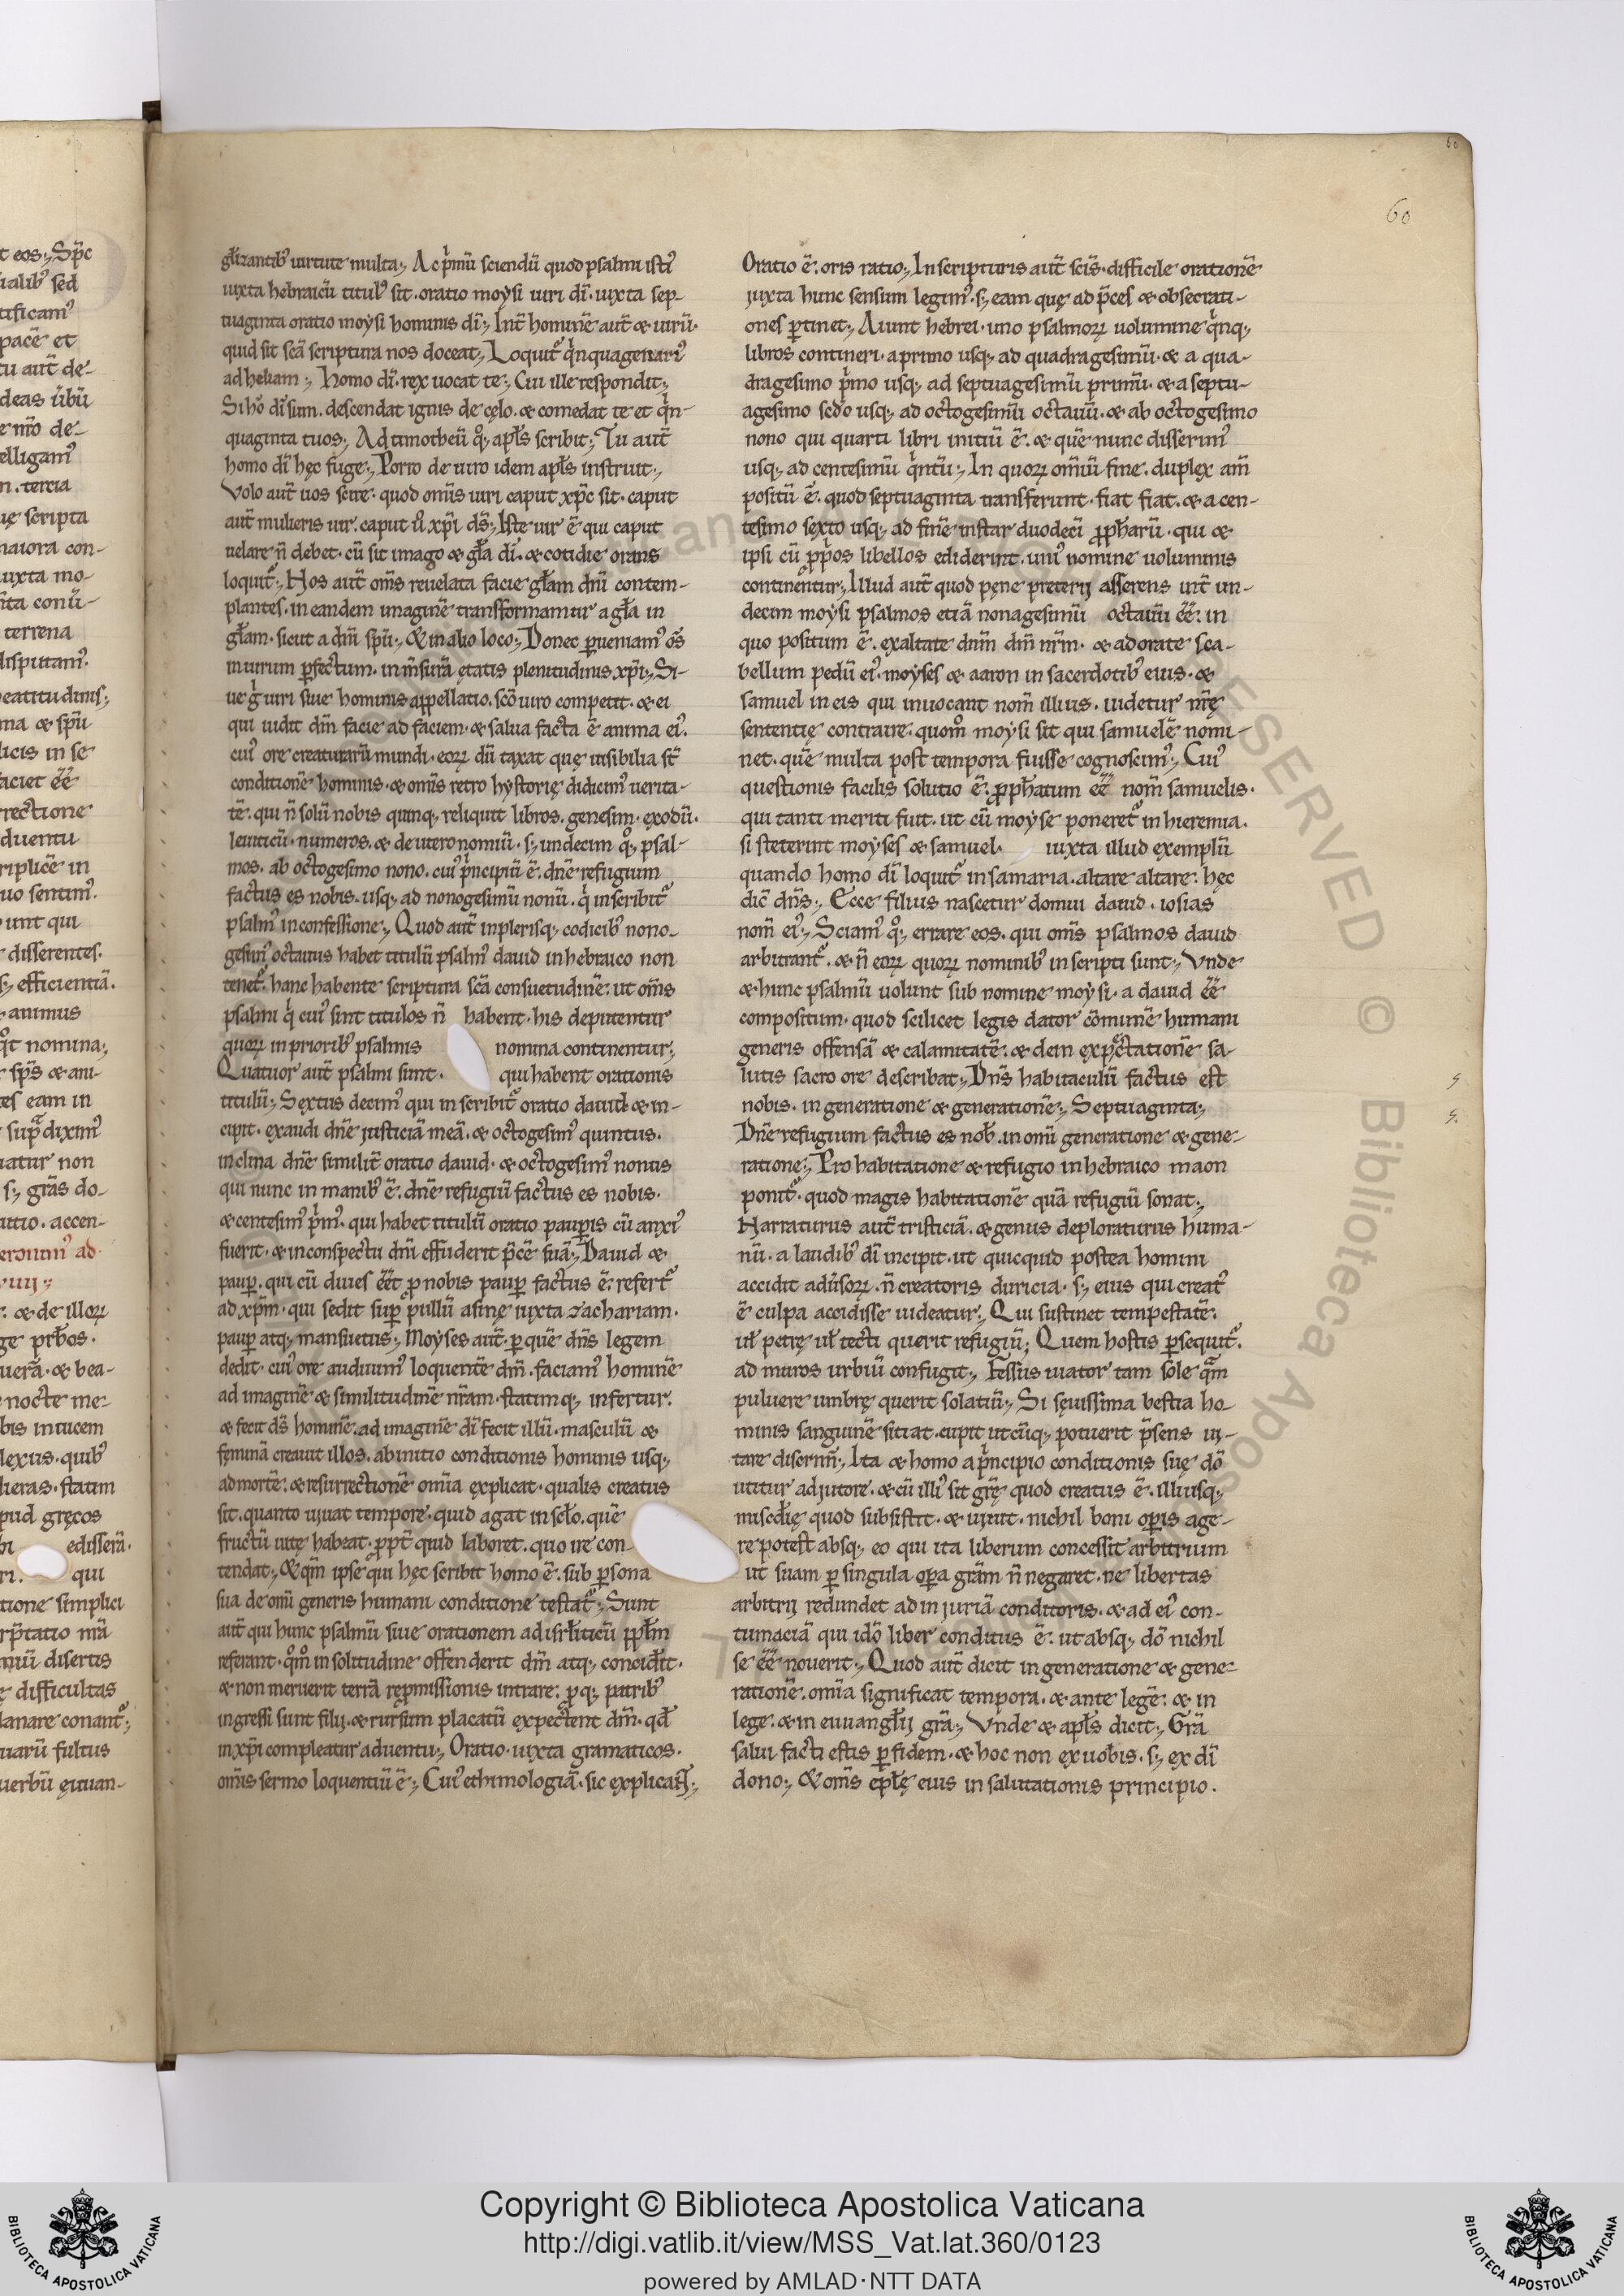 gl̄izantib᷒ uirtute multa; Ac pͥmū sciendū quod psalmi isti᷒
iuxta hebraicū titul᷒ sit . oratio moẏsi uiri dī . iuxta sep-
tuaginta oratio moẏsi hominis dī; Int̄ hominē aut̄ & uirū .
quid sit scā scriptura nos doceat; Loquit᷑ qͥnquagenari᷒
ad heliam; Homo dī . rex uocat te; Cui ille respondit;
Si hō dī sum . descendat ignis de cęlo . & comedat te et qͥn-
quaginta tuos; Ad timotheū qͦq; apl̄s scribit; Tu aut̄
homo dī hęc fuge; Porro de uiro idem apl̄s instruit;
Volo aut̄ uos scire . quod om̄is uiri caput xp̄c sit . caput
aut̄ mulieris uir . caput ů xp̄i ds̄; Iste uir ē qui caput
uelare n̄ debet . cū sit imago & gl̄a dī . & cotidie orans
loquit᷑; Hos aut̄ om̄s reuelata facie gl̄am dn̄i contem-
plantes . in eandem imaginē transformamur a gl̄a in
gl̄am . sicut a dn̄i spū; & in alio loco; Donec ꝑueniam᷒ om̄s
in uirum ꝑfectum . in m̄surā ętatis plenitudinis xp̄i; Si-
ue gͥ uiri siue hominis appellatio . scō uiro competit . & ei
qui uidit dm̄ facie ad faciem . & salua facta ē anima ei᷒ .
cui᷒ ore creaturarū mundi . eoꝝ dū taxat quę uisibilia st̄
conditionē hominis . & om̄is retro hẏstorię didicim᷒ uerita-
tē . qui n̄ solū nobis quinq; reliquit libros . genesim . exodū .
leuiticū . numeros . & deuteronomiū . s; undecim qͦq; psal-
mos . ab octogesimo nono . cui᷒ pͥncipiū ē . dn̄e refugium
factus es nobis . usq; ad nonogesimū nonū . qͥ inscribit᷑
psalm᷒ in confessione; Quod aut̄ in plerisq; codicib᷒ nono-
gesim᷒ octauus habet titulū psalm᷒ dauid in hebraico non
tenet᷑ . hanc habente scriptura scā consuetudinē . ut om̄s
psalmi qͥ cui᷒ sint titulos n̄ habent . his deputentur
quoꝝ in priorib᷒ psalmis nomina continentur;
Quatuor aut̄ psalmi sunt . qui habent orationis
titulū; Sextus decim᷒ qui inscribit᷑ oratio dauid . & in-
cipit . exaudi dn̄e justiciā meā . & octogesim᷒ quintus .
inclina dn̄e similit̄ oratio dauid . & octogesim᷒ nonus
qui nunc in manib᷒ ē . dn̄e refugiū factus es nobis .
& centesim᷒ pͥm᷒ . qui habet titulū oratio pauꝑis cū anxi᷒
fuerit . & in conspectu dn̄i effuderit p̄cē suā; Dauid &
pauꝑ . qui cū diues eēt pro nobis pauꝑ factus ē . refert᷑
ad xp̄m . qui sedit suꝑ pullū asinę iuxta zachariam .
pauꝑ atq; mansuetus; Moẏses aut̄ . ꝑ quē dn̄s legem
dedit . cui᷒ ore audiuim᷒ loquentē dm̄ . faciam᷒ hominē
ad imaginē & similitudinē nr̄am . statimq; infertur .
& fecit ds̄ hominē . ad imaginē dī fecit illū . masculū &
feminā creauit illos . ab initio conditionis hominis usq;
ad mortē . & resurrectionē om̄ia explicat . qualis creatus
sit . quanto uiuat tempore . quid agat in sclo . quē
fructū uitę habeat . ꝓpt̄ quid laboret . quo ire con-
tendat; & qm̄ ipse qui hęc scribit homo ē . sub ꝑsona
sua de om̄i generis humani conditione testat᷑; Sunt
aut̄ qui hunc psalmū siue orationem ad isrl̄iticū ppl̄m
referant . qͦmͦ in solitudine offenderit dm̄ atq; conciderit .
& non meruerit terrā repromissionis intrare . ꝓq; patrib᷒
ingressi sunt filij . & rursum placatū expectent dm̄ . qd̄
in xp̄i compleatur aduentu; Oratio . iuxta gramaticos .
om̄is sermo loquentiū ē; Cui᷒ ethimologiā . sic explicant;
Oratio ē . oris ratio; In scripturis aut̄ scīs . difficile orationē
juxta hunc sensum legim᷒ . s; eam quę ad p̄ces & obsecrati-
ones ꝑtinet; Aiunt hebrei . uno psalmoꝝ uolumine qͥnq;
libros contineri . a primo usq; ad quadragesimū . & a qua-
dragesimo pͥmo usq; ad septuagesimū primū . & a septu-
agesimo scd̄o usq; ad octogesimū octauū . & ab octogesimo
nono qui quarti libri initiū ē . & quē nunc disserim᷒
usq; ad centesimū qͥntū; In quoꝝ om̄iū fine . duplex am̄
positū ē . quod septuaginta transferunt . fiat fiat . & a cen-
tesimo sexto usq; ad finē instar duodeci ꝓph̄arū . qui &
ipsi cū pp̄os libellos ediderint . uni᷒ nomine uoluminis
continentur; Illud aut̄ quod pęne preterij asserens unt̄ un-
decim moẏsi psalmos etiā nonagesimū octauū eē̄ . in
quo positum ē . exaltate dn̄m dm̄ nr̄m . & adorate sca-
bellum pedū ei᷒ . moẏses & aaron in sacerdotib᷒ eius . &
samuel in eis qui inuocant nom̄ illius . uidetur nr̄ę
sententię contraire . quomͦ moẏsi sit qui samuelē nomi-
net . quē multa post tempora fuisse cognoscim᷒; Cui᷒
questionis facilis solutio ē . ꝓph̄atum eē̄ nom̄ samuelis .
qui tanti meriti fuit . ut cū moẏse poneret᷑ in hieremia .
si steterint moẏses & samuel . iuxta illud exemplū
quando homo dī loquit᷑ in samaria . altare altare . hęc
dic̄ dn̄s; Ecce filius nascetur domui dauid . iosias
nom̄ ei᷒; Sciam᷒ qͦq; errare eos . qui om̄s psalmos dauid
arbitrant᷑ . & n̄ eoꝝ quoꝝ nominib᷒ inscripti sunt; Vnde
& hunc psalmū uolunt sub nomine moẏsi . a dauid eē̄
compositum . quod scilicet legis dator cōmunē humani
generis offensā & calamitatē . & dein expectationē sa-
lutis sacro ore describat; Dn̄s habitaculū factus est
nobis . in generatione & generationē; Septuaginta;
Dn̄e refugium factus es nob̄ . in omni generatione & gene-
ratione; Pro habitatione & refugio in hebraico maon
ponit᷑ . quod magis habitationē quā refugiū sonat;
Narraturus aut̄ tristiciā . & genus deploraturus huma-
nū . a laudib᷒ dī incipit . ut quicquid postea homini
accidit aduersoꝝ . n̄ creatoris duricia . s; eius qui creat᷒
ē culpa accidisse uideatur; Qui sustinet tempestatē .
ul̄ petrę ul̄ tecti querit refugiū; Quem hostis ꝑsequit᷑ .
ad muros urbiū confugit; Fessus uiator tam sole qᷓm
puluere umbrę querit solatiū; Si sęuissima bestia ho-
minis sanguinē sitiat . cupit utcūq; potuerit p̄sens ui-
tare discrim̄; Ita & homo a pͥncipio conditionis suę dō
utitur adjutore . & cū illi᷒ sit gr̄ę quod creatus ē . illiusq;
miscd̄ię quod subsistit . & uiuit . nichil boni oꝑis age-
re potest absq; eo qui ita liberum concessit arbitrium
ut suam ꝑ singula oꝑa grām n̄ negaret . ne libertas
arbitrij redundet ad injuriā conditoris . & ad ei᷒ con-
tumaciā qui idō liber conditus ē . ut absq; dō nichil
se eē̄ nouerit; Quod aut̄ dicit in generatione & gene-
rationē . om̄ia significat tempora . & ante legē . & in
lege . & in euuangl̄ij grā; Vnde & apl̄s dicit; Grā
salui facti estis ꝑ fidem . & hoc non ex uobis . s; ex dī
dono; & om̄s epl̄ę eius in salutationis principio .
60
Copyright © Biblioteca Apostolica Vaticana
http://digi.vatlib.it/view/MSS_Vat.lat.360/0123
powered by AMLAD·NTT DATA
BIBLIOTECA APOSTOLICA VATICANA
BIBLIOTECA APOSTOLICA VATICANA